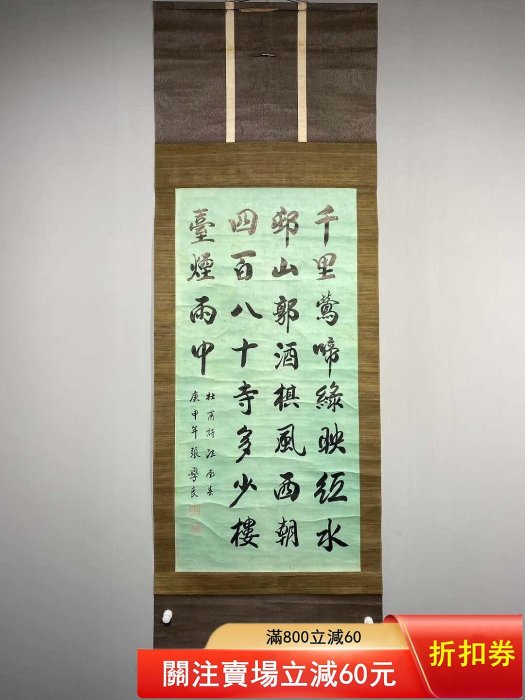 千里鶯啼綠映紅水
邨山郭酒棋風西朝
四百八十寺多少樓
臺煙雨中
杜詩江南春
庚申年張學良
滿800立減60
關注賣場立減60元
折扣券